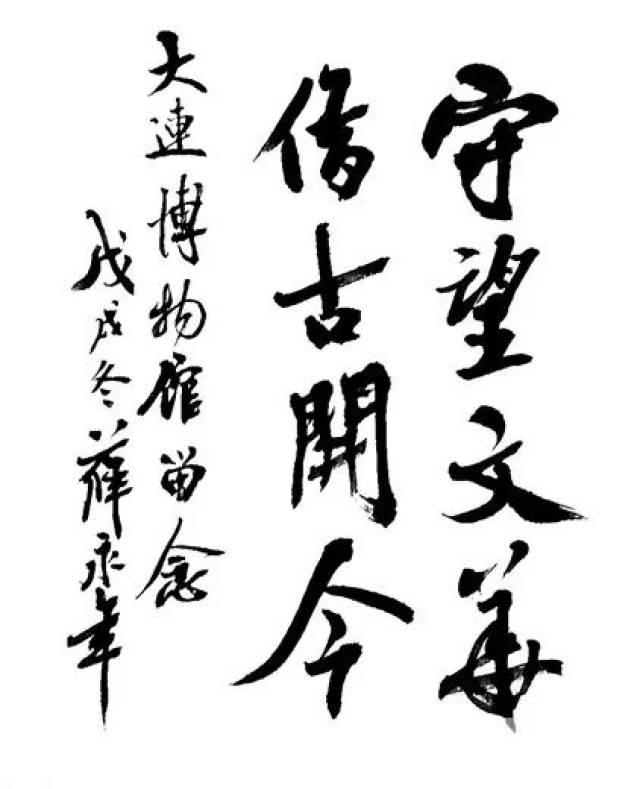 守望文華
借古開今
大連博物館留念
戊戌冬薛永年